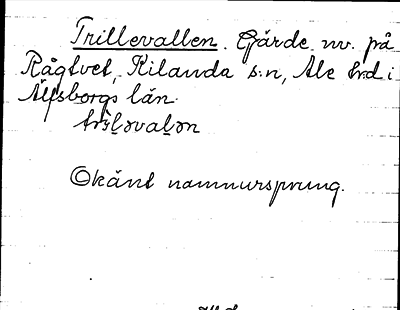 Trillevallen. Gärde nv. på
Rågtvet, Kilanda s:n, Ale hrd i
Älfsborgs län.
Okänt namnursprung.